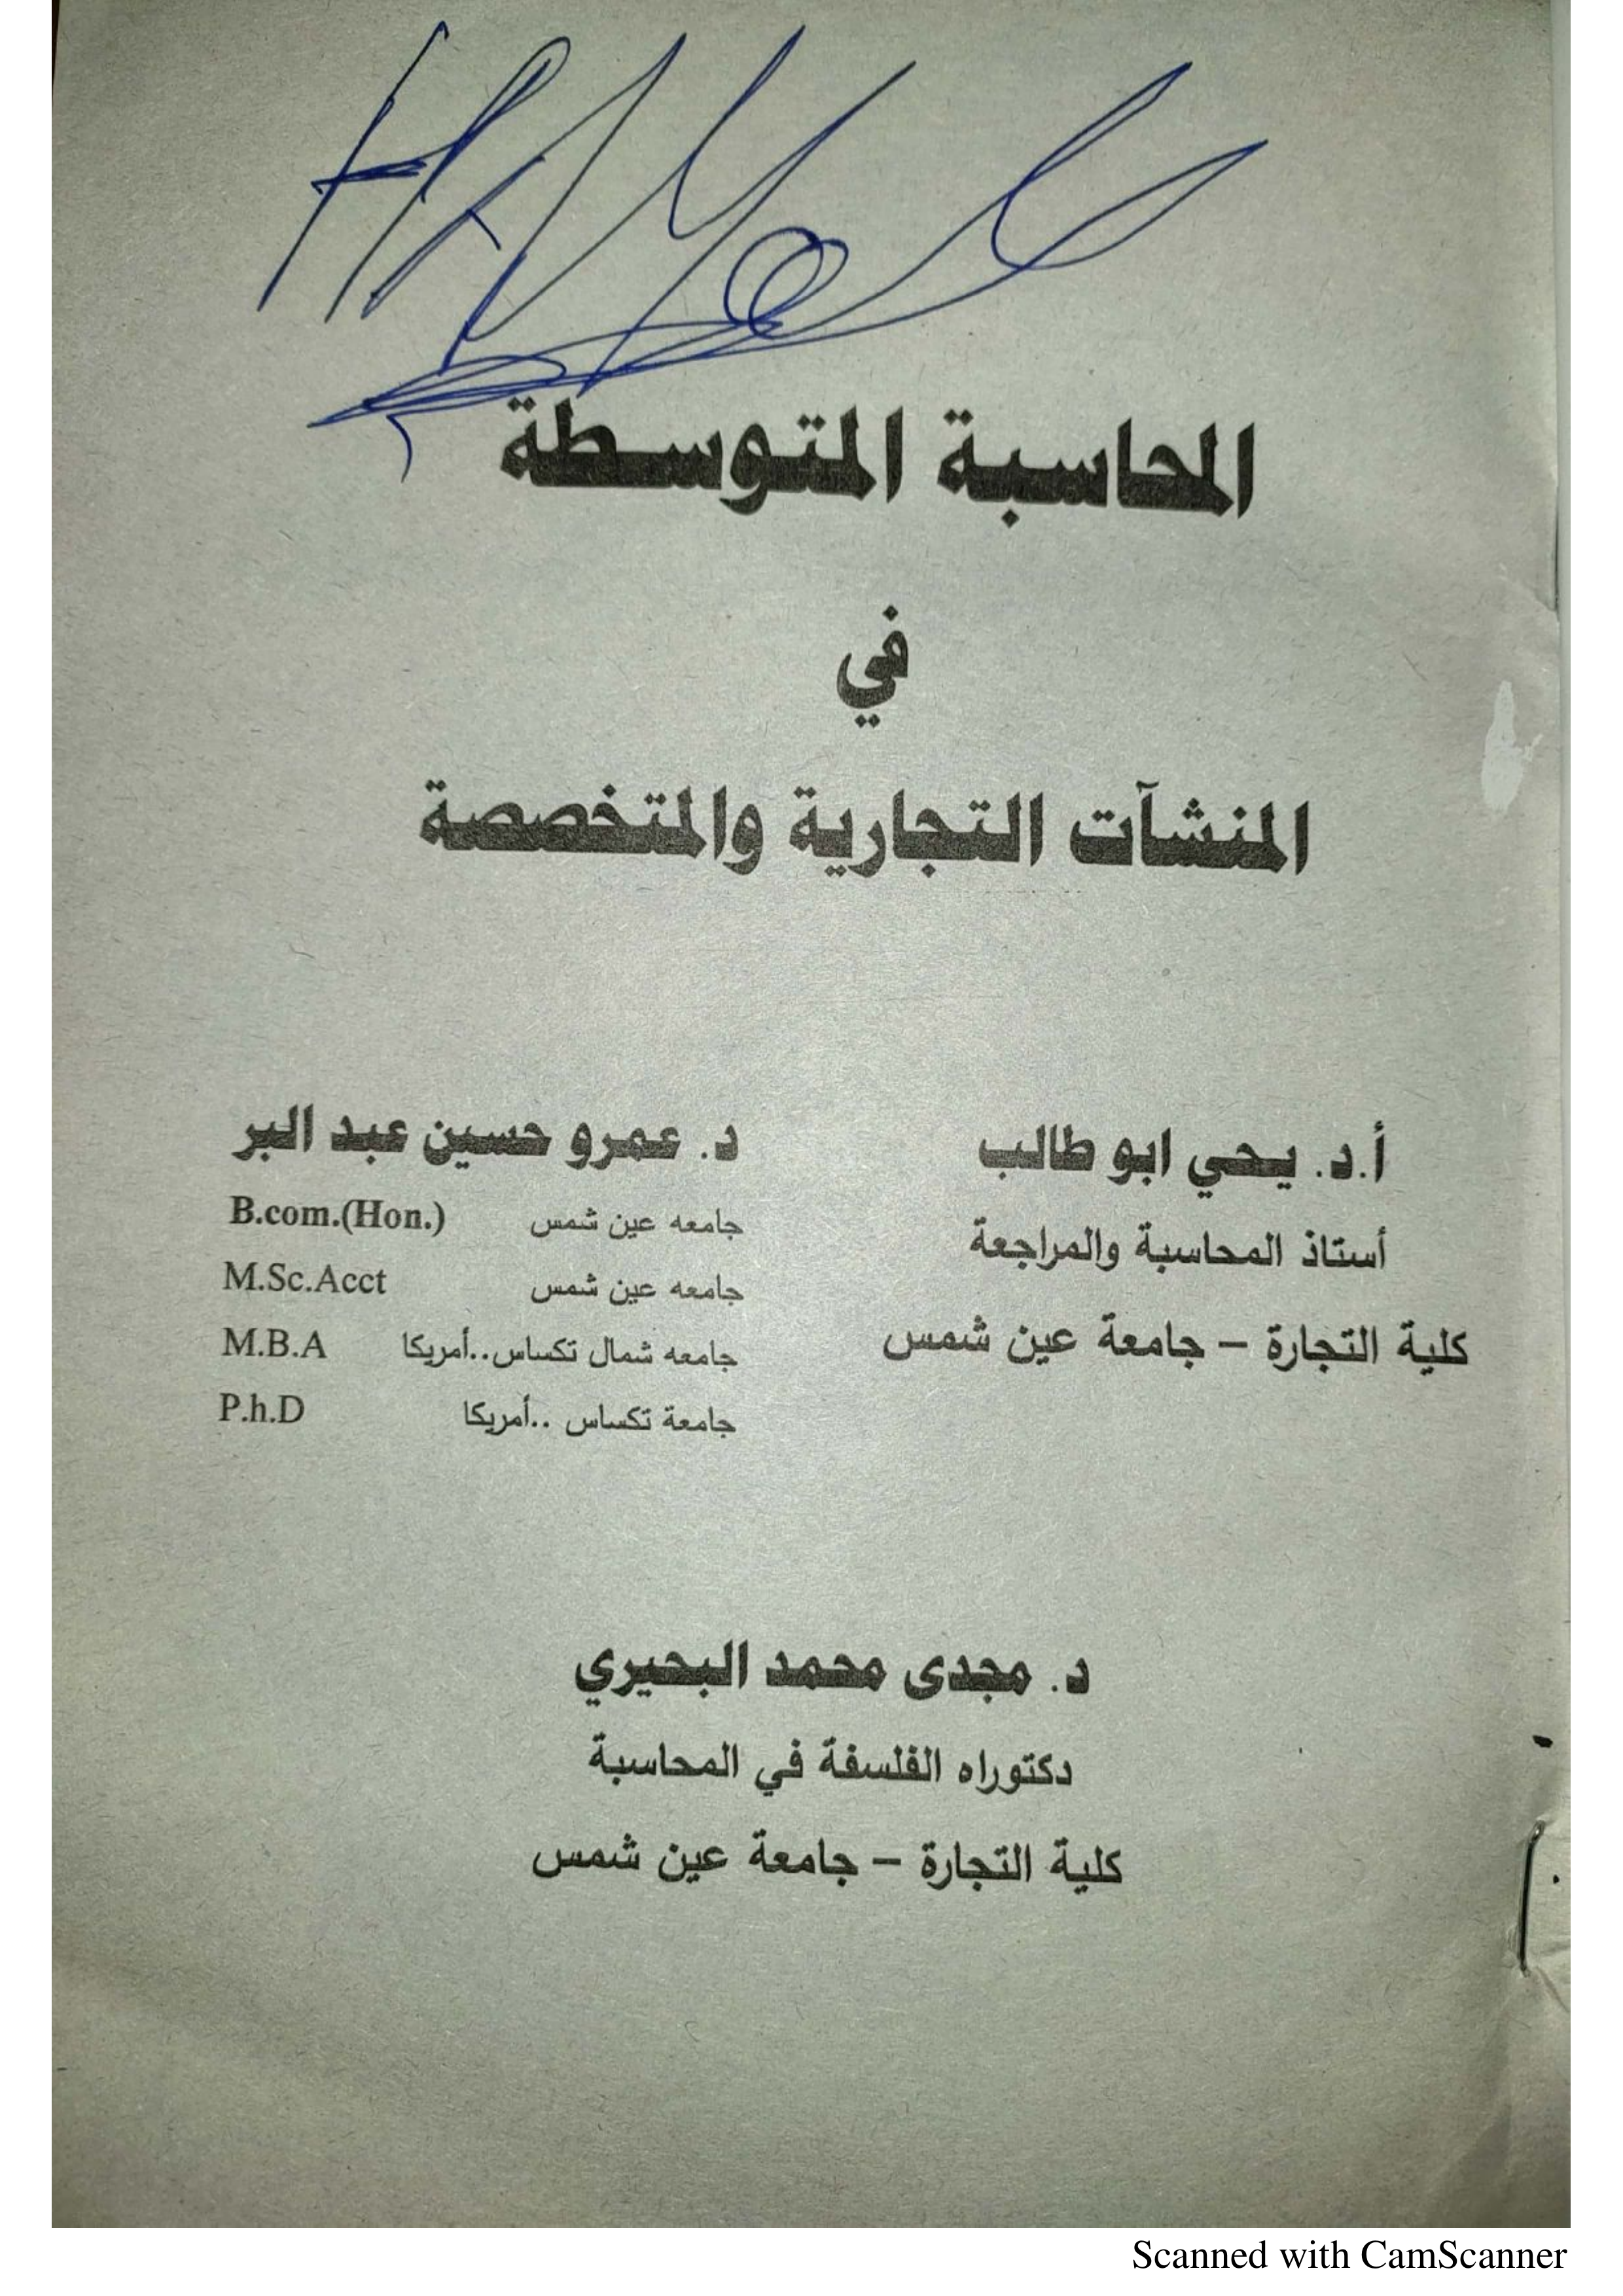 المحاسبة المتوسطة
في
المنشآت التجارية والمتخصصة
أ.د. يحي ابو طالب
أستاذ المحاسبة والمراجعة
كلية التجارة – جامعة عين شمس
د. عمرو حسين عبد البر
جامعه عين شمس B.com.(Hon.)
جامعه عين شمس M.Sc.Acct
جامعه شمال تكساس..أمريكا M.B.A
جامعة تكساس ..أمريكا P.h.D
د. مجدى محمد البحيري
دكتوراه الفلسفة في المحاسبة
كلية التجارة – جامعة عين شمس
Scanned with CamScanner